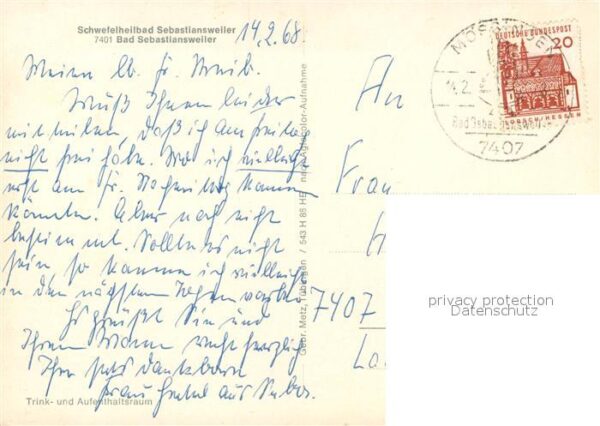 Schwefelheilbad Sebastiansweiler
7401 Bad Sebastiansweiler
14.2.68.
Meine lb. Fr. 
Muß Ihnen leider
mitteilen, daß ich am Freitag
nicht frei habe. Wo ich vielleicht
erst am Fr. Nachmittag kommen
könnte. Aber noch nicht
bestimmt. Sollte es nicht
sein, so komme ich vielleicht
in den nächsten Tagen vorbei.
Es grüßt Sie und
Ihren Mann recht herzlich
Ihre stets dankbare
Frau aus Sebas.
Trink- und Aufenthaltsraum
Gebr. Metz, Tübingen / 543 H 86 HE nach Agfacolor-Aufnahme
An
Frau
7407
DEUTSCHE BUNDESPOST
20
LORSCH/HESSEN
MÖSSINGEN
14.2.
Bad Sebastiansweiler
7407
privacy protection
Datenschutz